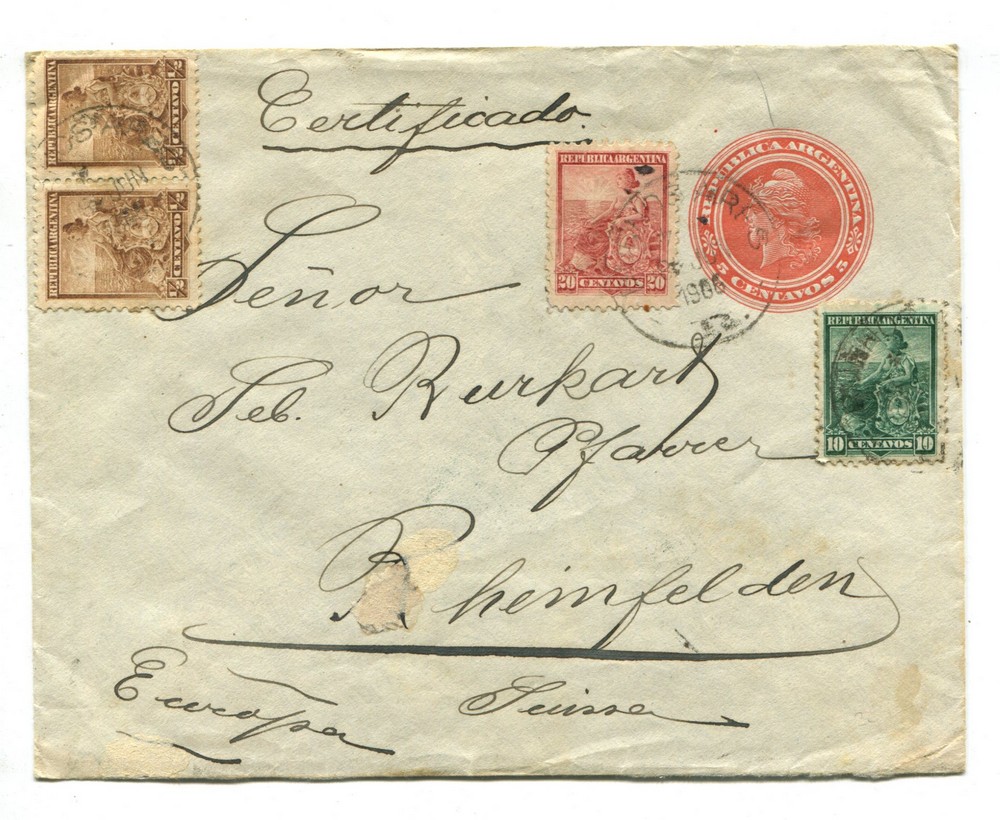 Certificado.
REPUBLICA ARGENTINA
½ CENTAVO ½
REPUBLICA ARGENTINA
½ CENTAVO ½
REPUBLICA ARGENTINA
20 CENTAVOS 20
REPUBLICA ARGENTINA
5 CENTAVOS 5
1906
REPUBLICA ARGENTINA
10 CENTAVOS 10
Señor
Seb. Burkart
Pfarrer
Rheinfelden
Europa
Suisse